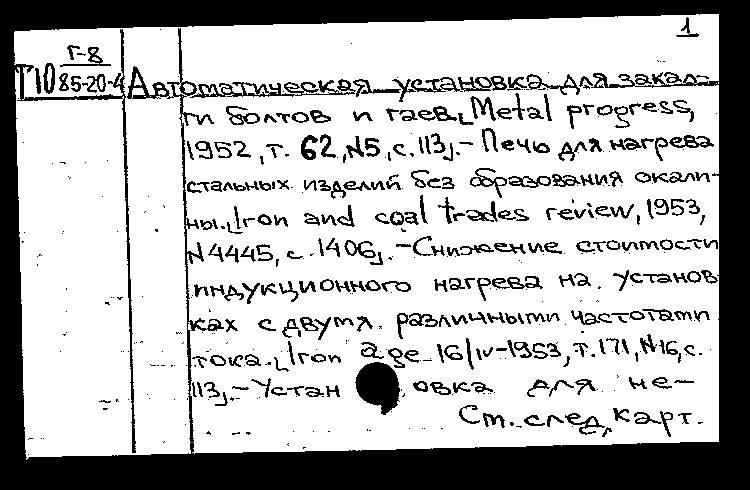 1
Г-8
Т10 85-20-4 Автоматическая установка для закал-
ки болтов и гаек. [Metal progress,
1952, т. 62, N5, с. 113]. - Печь для нагрева
стальных изделий без образования окали-
ны. [Iron and coal trades review, 1953,
N 4445, с. 1406]. - Снижение стоимости
индукционного нагрева на установ-
ках с двумя различными частотами
тока. [Iron age 16/IV-1953, т. 171, N16, с.
113]. - Установка для не-
См. след. карт.